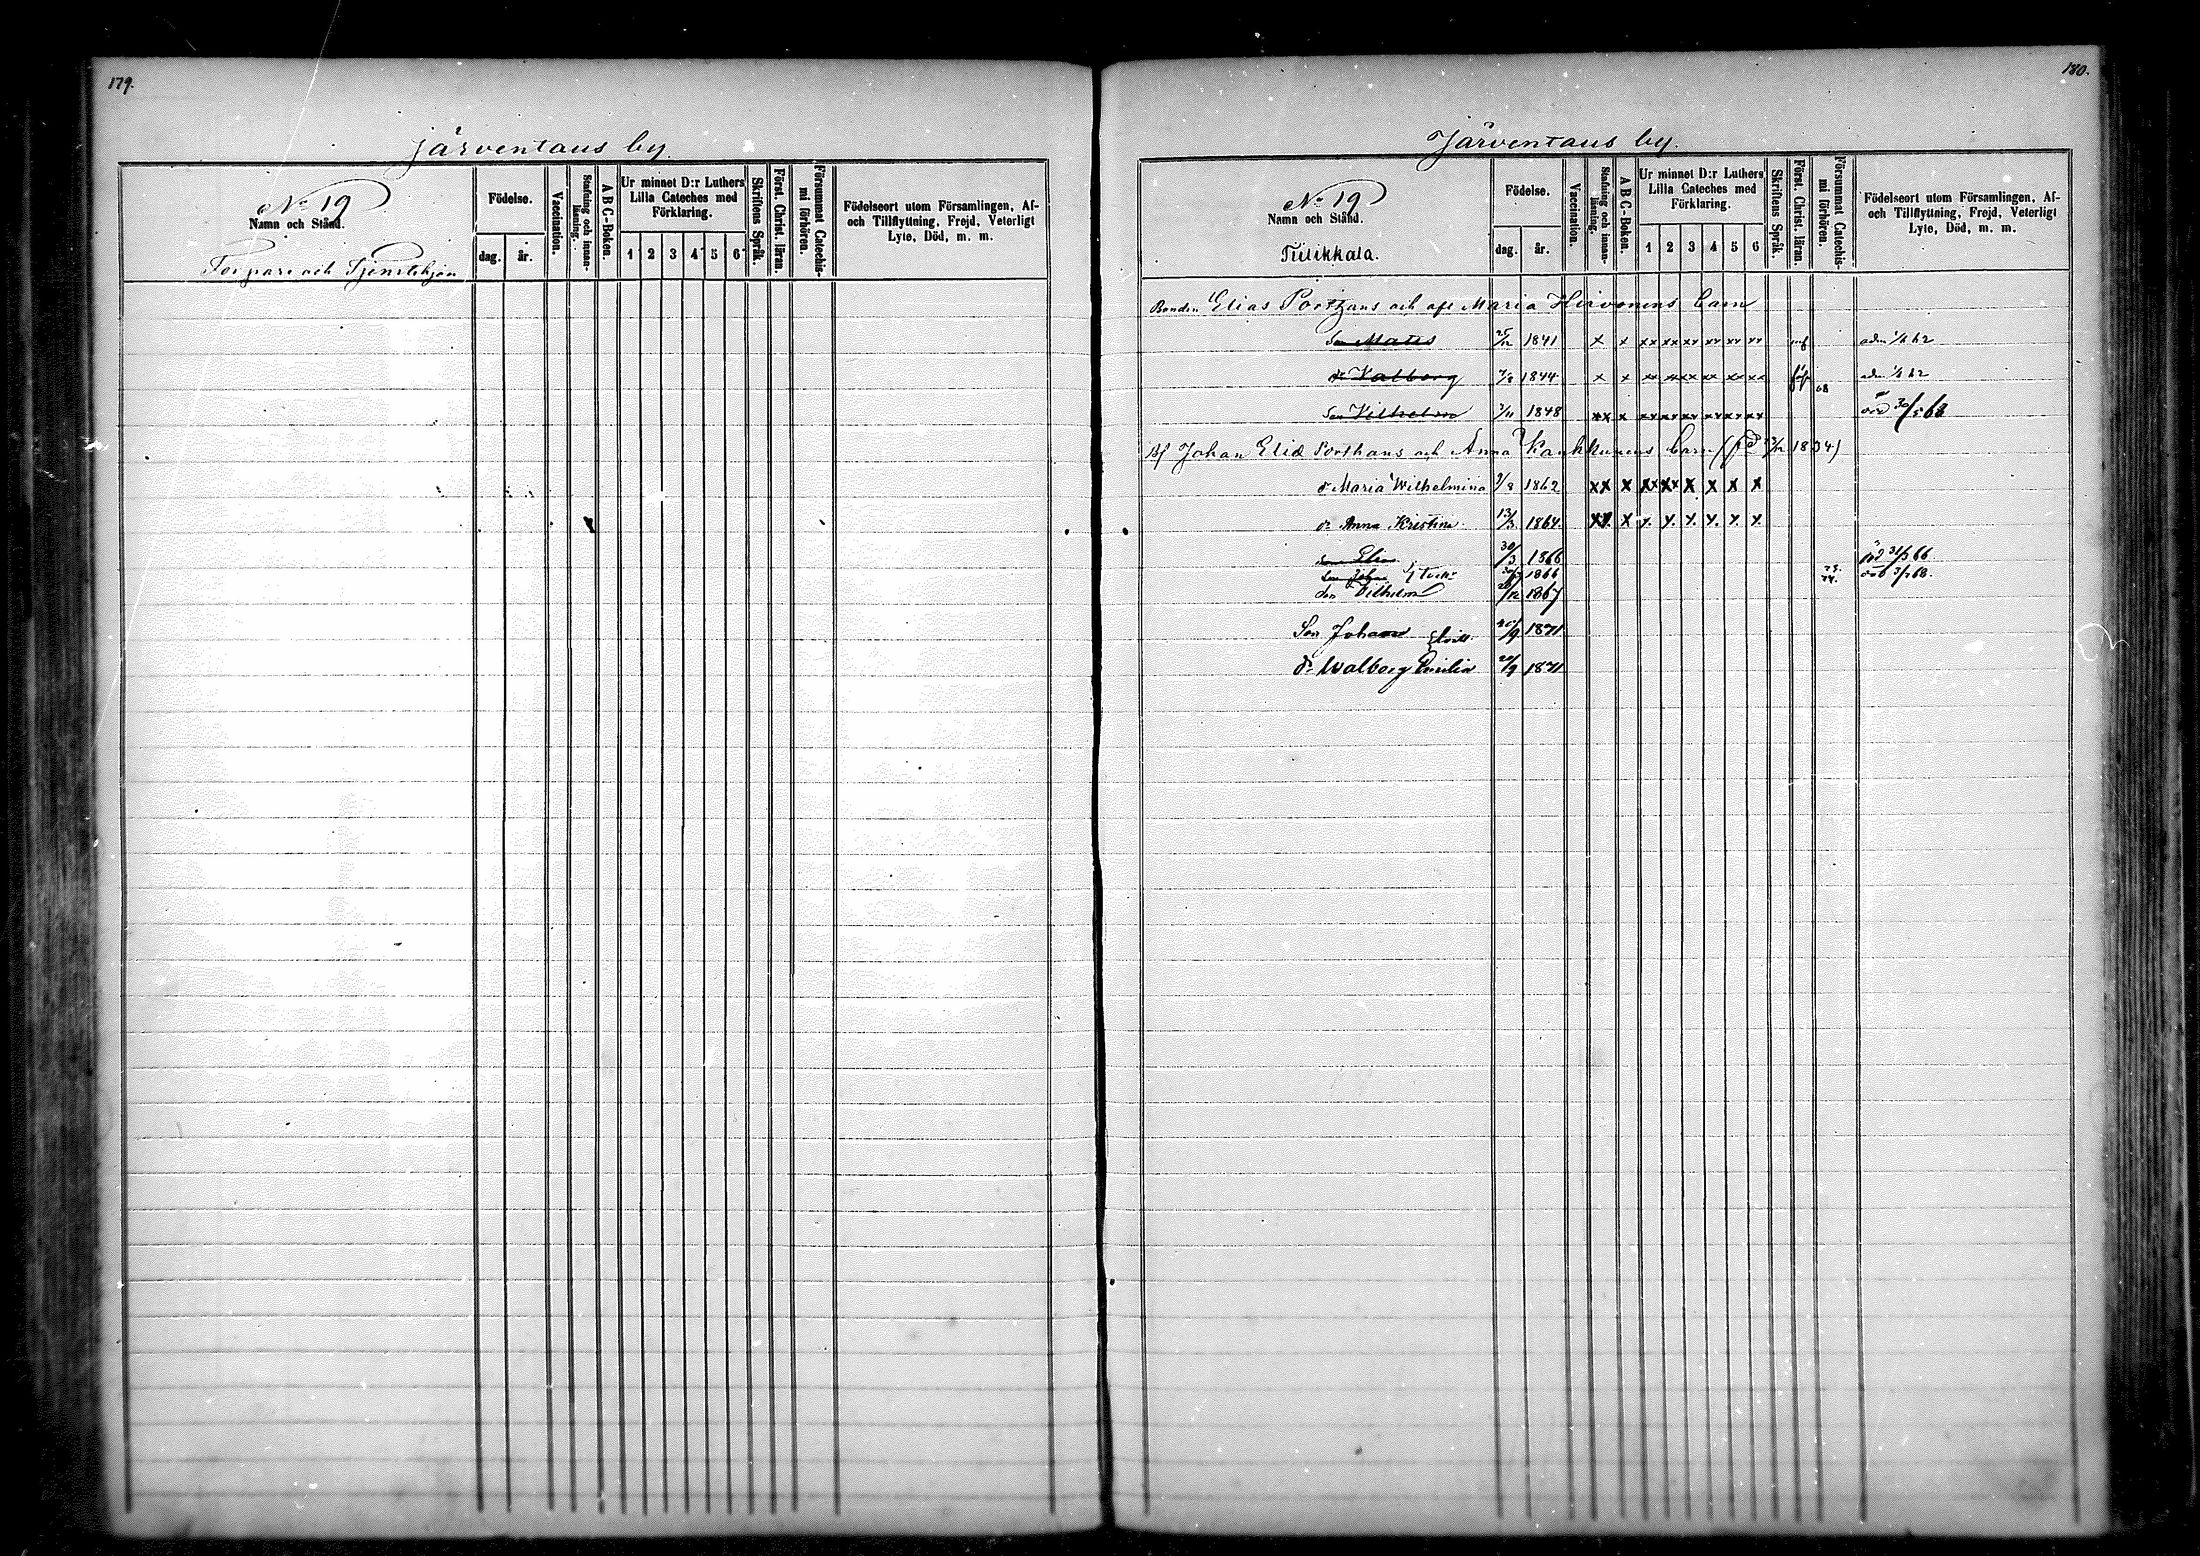 179.
Järventaus by
No 19
Namn och Stånd.
Torpare och Tjenstehjon
Födelse.
dag. år.
Vaccination.
Stafning och innanläsning.
A B C-Boken.
Ur minnet D:r Luthers
Lilla Cateches med
Förklaring.
1 2 3 4 5 6
Skriftens Språk.
Först. Christ. läran.
Försummat Catechismi förhören.
Födelseort utom Församlingen, Af-
och Tillflyttning, Frejd, Veterligt
Lyte, Död, m. m.
180.
Järventaus by.
No 19
Namn och Stånd.
Tiilikkala.
Födelse.
dag. år.
Vaccination.
Stafning och innanläsning.
A B C-Boken.
Ur minnet D:r Luthers
Lilla Cateches med
Förklaring.
1 2 3 4 5 6
Skriftens Språk.
Först. Christ. läran.
Försummat Catechismi förhören.
Födelseort utom Församlingen, Af-
och Tillflyttning, Frejd, Veterligt
Lyte, Död, m. m.
Bonden Elias Porthans och afl Maria Hirvonens barn
Son Matts 1841 x x xx xx xx xx xx xx adm 62
dr Valborg 1844 x x xx xx xx xx xx xx 68 adm 62
Son Vilhelm 1848 xx x xx xx xx xx xx xx död 30/5 68
Johan Elias Porthans och Anna barn
dr Maria Wilhelmina 1862 xx x xx xx x x x x
dr Anna Kristina 13/3 1864 xx x x x x x x x
Son Elias 30/3 1866 död 31/3 66.
Son Johan 1866 död 68.
Son Vilhelm 1867
Son Johan 1871
dr Walborg Emilia 1871